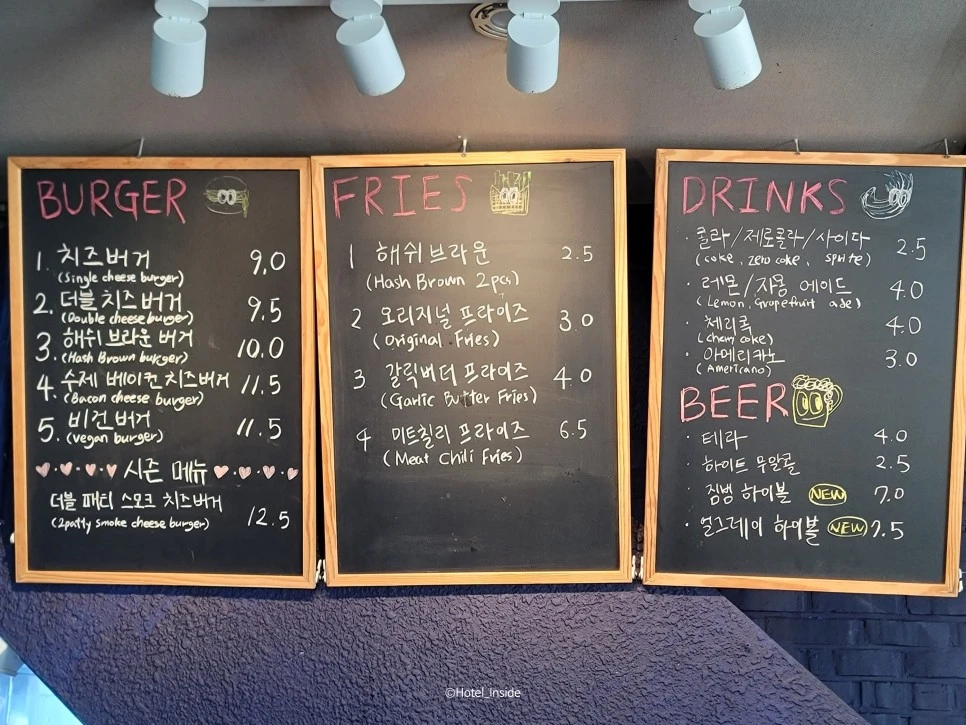 BURGER
1. 치즈버거 9.0
(Single cheese burger)
2. 더블치즈버거 9.5
(Double cheese burger)
3. 해쉬 브라운 버거 10.0
(Hash Brown burger)
4. 수제 베이컨 치즈버거 11.5
(Bacon cheese burger)
5. 비건 버거 11.5
(vegan burger)
시즌 메뉴
더블 패티 스모크 치즈버거
(2patty smoke cheese burger) 12.5
FRIES
1 해쉬브라운 2.5
(Hash Brown 2pcs)
2 오리지널 프라이즈 3.0
(Original Fries)
3 갈릭버터 프라이즈 4.0
(Garlic Butter Fries)
4 미트칠리 프라이즈 6.5
(Meat Chili Fries)
DRINKS
· 콜라/제로콜라/사이다 2.5
(coke, zero coke, sprite)
· 레몬/자몽 에이드 4.0
(Lemon, Grapefruit ade)
· 체리콕 4.0
· 아메리카노 3.0
(Americano)
BEER
· 테라 4.0
· 하이트 무알콜 2.5
· 짐빔 하이볼 NEW 7.0
· 얼그레이 하이볼 NEW 7.5
©Hotel_Inside